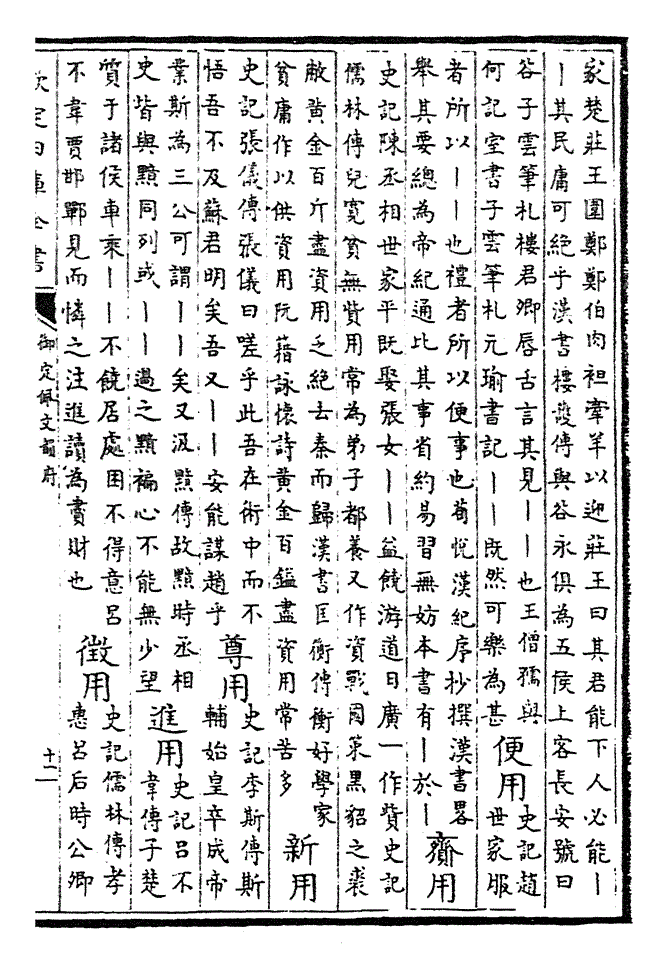 家楚莊王圍鄭鄭伯肉袒牽羊以迎莊王曰其君能下人必能丨
丨其民庸可絕乎漢書樓護傳與谷永俱為五侯上客長安號曰
谷子雲筆札樓君卿唇舌言其見丨丨也王僧孺與
何記室書子雲筆札元瑜書記丨丨既然可樂為甚
便用
史記趙
世家服
者所以丨丨也禮者所以便事也荀悅漢紀序抄撰漢書畧
舉其要總為帝紀通比其事省約易習無妨本書有丨於丨
齎用
史記陳丞相世家平既娶張女丨丨益饒游道日廣一作貲史記
儒林傳兒寬貧無貲用常為弟子都養又作資戰國策黑貂之裘
敝黃金百斤盡資用乏絕去秦而歸漢書匡衡傳衡好學家
貧庸作以供資用阮藉詠懷詩黃金百鎰盡資用常苦多
新用
史記張儀傳張儀曰嗟乎此吾在術中而不
悟吾不及蘇君明矣吾又丨丨安能謀趙乎
尊用
史記李斯傳斯
輔始皇卒成帝
業斯為三公可謂丨丨矣又汲黯傳故黯時丞相
史皆與黯同列或丨丨過之黯褊心不能無少望
進用
史記呂不
韋傳子楚
質于諸侯車乘丨丨不饒居處困不得意呂
不韋賈邯鄲見而憐之注進讀為賮財也
徵用
史記儒林傳孝
惠呂后時公卿
欽定四庫全書
御定佩文韻府
十二